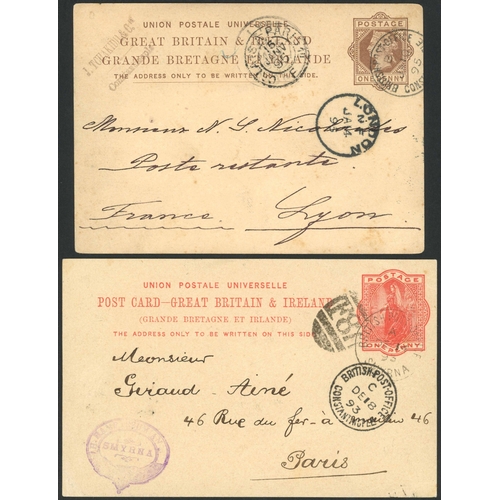 UNION POSTALE UNIVERSELLE
GREAT BRITAIN & I
GRANDE BRETAGNE ET IRLANDE
THE ADDRESS ONLY TO BE WRITTEN ON THIS SIDE.
POSTAGE
ONE PENNY
PARIS
BRITISH POST OFFICE
LONDON
JA 4
Monsieur N. S.
Poste restante
France. Lyon
UNION POSTALE UNIVERSELLE
POST CARD—GREAT BRITAIN & IRELAND
(GRANDE BRETAGNE ET IRLANDE)
THE ADDRESS ONLY TO BE WRITTEN ON THIS SIDE
POSTAGE
ONE PENNY
Meonsieur
Geraud-Ainé
46 Rue du fer-à 46
Paris
BRITISH-POST-OFFICE
C
DE 18
93
SMYRNA